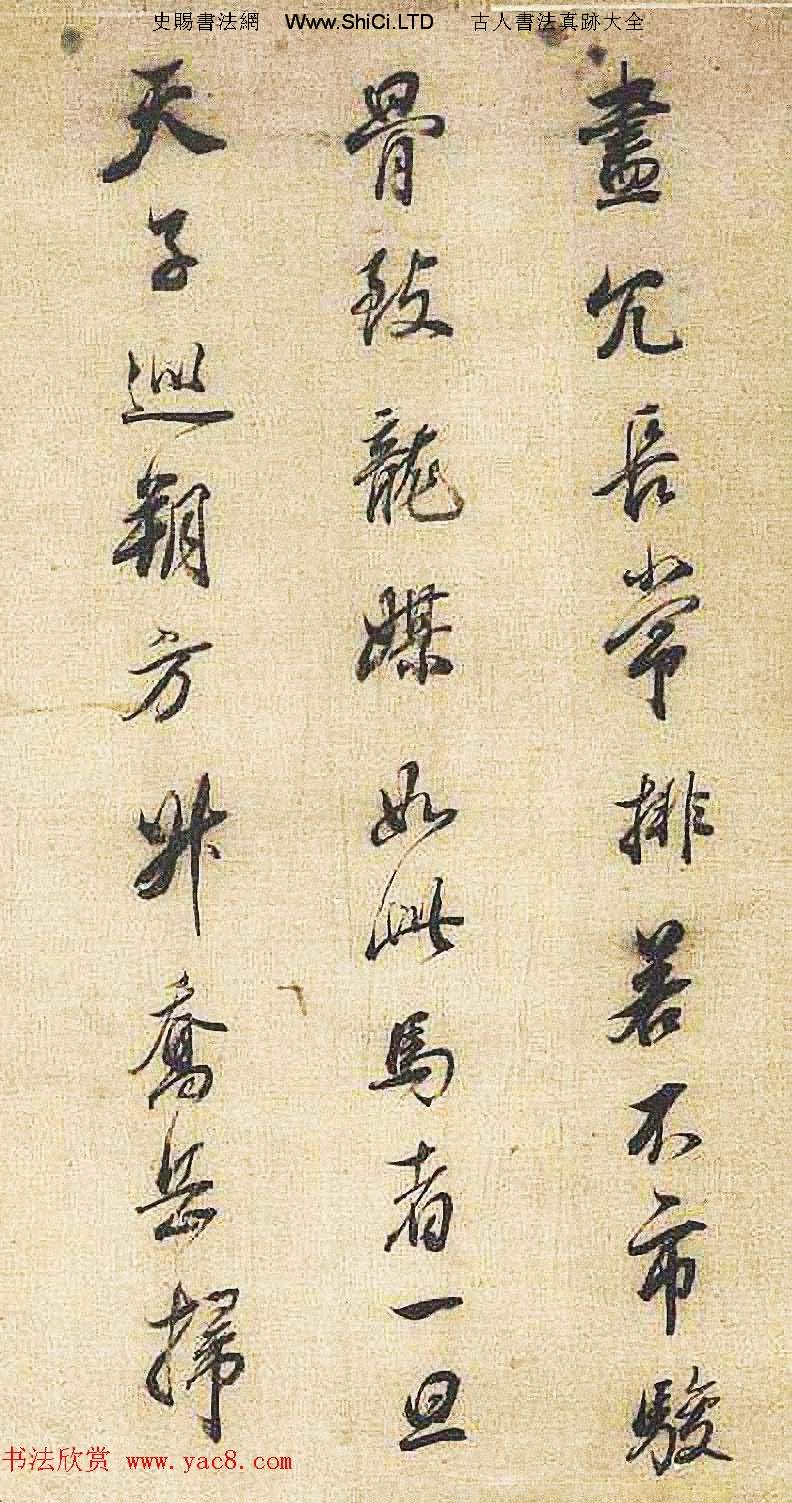 史賜書法網 Www.ShiCi.LTD 古人書法真跡大全
盡冗長常排若不市駿
骨致龍媒如此馬者一旦
天子巡朔方升喬岳掃
书法欣赏 www.yac8.com